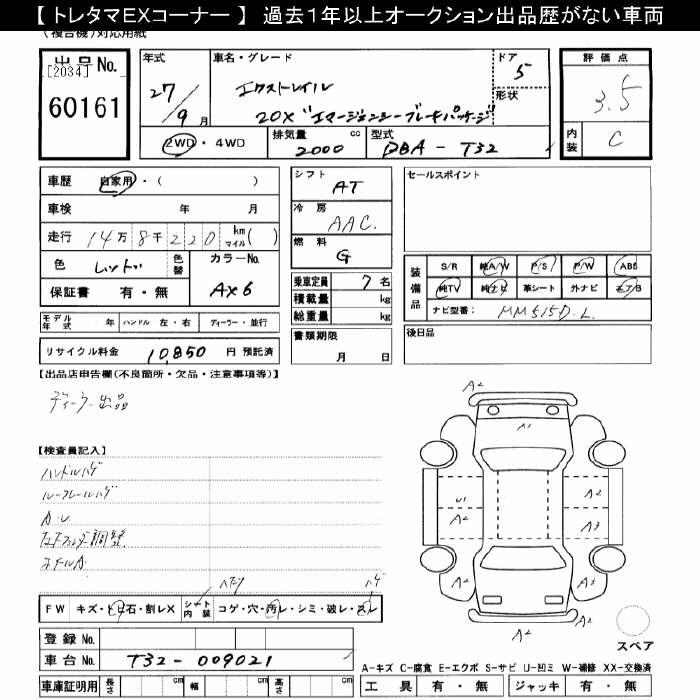 【 トレタマEXコーナー 】 過去1年以上オークション出品歴がない車両
(複合機)対応用紙
出品No.
[2034]
60161
年式
27/9月
車名・グレード
エクストレイル
20X "エマージェンシーブレーキパッケージ"
ドア
5
形状
評価点
3.5
内装
C
2WD・4WD
排気量 cc
2000
型式
DBA - T32
車歴 自家用・( )
車検 年 月
走行 14万8千220 km マイル( )
色 レッド 色替
カラーNo.
AX6
保証書 有・無
モデル年式 年 ハンドル 左・右 ディーラー・並行
リサイクル料金 10,850 円 預託済
シフト
AT
冷房
AAC.
燃料
G
乗車定員 7 名
積載量 kg
総重量 kg
書類期限
月 日
セールスポイント
装備品
S/R 純A/W P/S P/W ABS
純TV 純ナビ 革シート 外ナビ エアB
ナビ型番: MM515D-L
後日品
【出品店申告欄(不良箇所・欠品・注意事項等)】
ディーラー出品
【検査員記入】
ハンドルハゲ
ルーフレールハゲ
A・U
ホイールA
FW キズ・トビ石・割レX シート内装 コゲ・穴・汚レ・シミ・破レ・スレ
ハゲ
登録No.
車台No. T32-009021
車庫証明用 長さ cm 幅 cm 高さ cm
A2
A1
U1
A2
A2
A3
A2
A3
A2
A2
スペア
A-キズ C-腐食 E-エクボ S-サビ U-凹ミ W-補修 XX-交換済
工具 有・無 ジャッキ 有・無